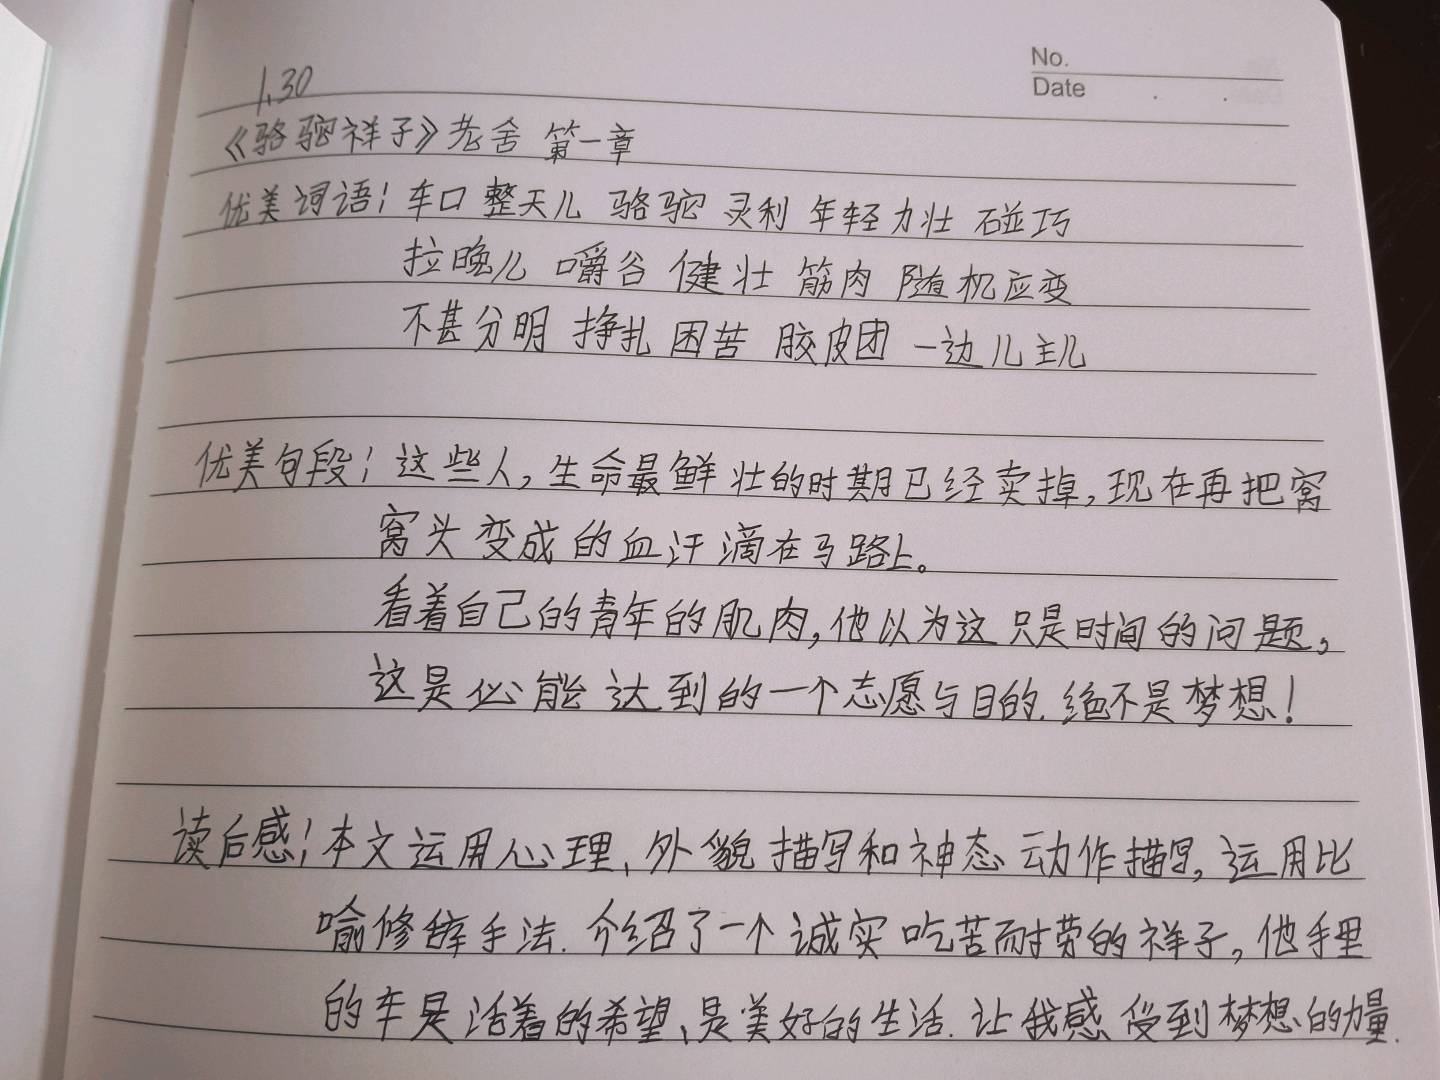 No.
Date
1.30
《骆驼祥子》老舍 第一章
优美词语：车口 整天儿 骆驼 灵利 年轻力壮 碰巧
拉晚儿 嚼谷 健壮 筋肉 随机应变
不甚分明 挣扎 困苦 胶皮团 一边儿主儿
优美句段：这些人，生命最鲜壮的时期已经卖掉，现在再把窝
窝头变成的血汗滴在马路上。
看着自己的青年的肌肉，他以为这只是时间的问题，
这是必能达到的一个志愿与目的，绝不是梦想！
读后感：本文运用心理、外貌描写和神态动作描写，运用比
喻修辞手法，介绍了一个诚实吃苦耐劳的祥子，他手里
的车是活着的希望、是美好的生活，让我感受到梦想的力量.